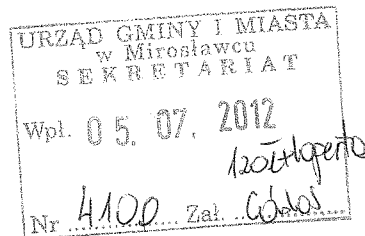 URZĄD GMINY I MIASTA
w Mirosławcu
SEKRETARIAT
Wpł. 05. 07. 2012
Nr 4100 Zał.